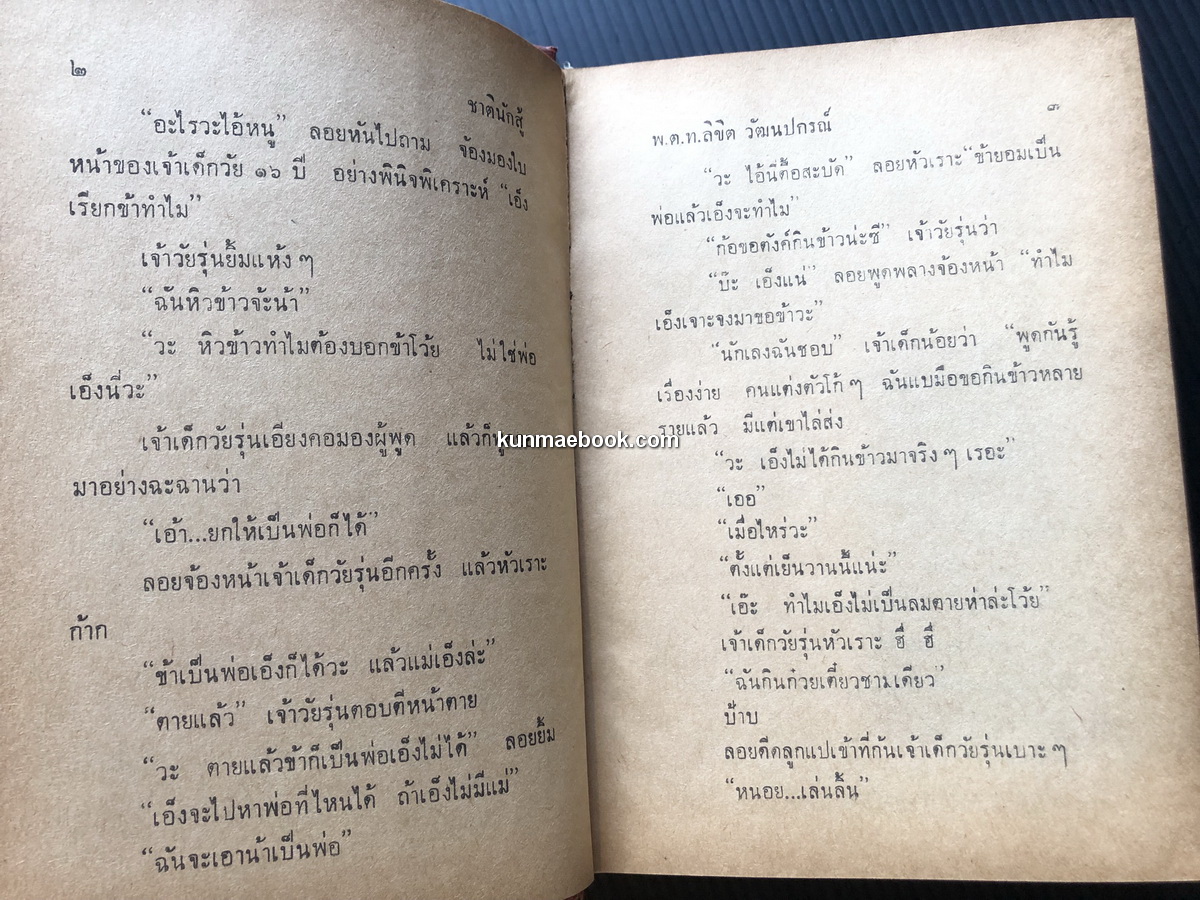 ๒
ชาตินักสู้
“อะไรวะไอ้หนู” ลอยหันไปถาม จ้องมองใบ
หน้าของเจ้าเด็กวัย ๑๖ ปี อย่างพินิจพิเคราะห์ “เอ็ง
เรียกข้าทำไม”
เจ้าวัยรุ่นยิ้มแห้ง ๆ
“ฉันหิวข้าวจ้ะน้า”
“วะ หิวข้าวทำไมต้องบอกข้าโว้ย ไม่ใช่พ่อ
เอ็งนี่วะ”
เจ้าเด็กวัยรุ่นเอียงคอมองผู้พูด แล้วก็
มาอย่างฉะฉานว่า
“เอ้า...ยกให้เป็นพ่อก็ได้”
ลอยจ้องหน้าเจ้าเด็กวัยรุ่นอีกครั้ง แล้วหัวเราะ
ก้าก
“ข้าเป็นพ่อเอ็งก็ได้วะ แล้วแม่เอ็งล่ะ”
“ตายแล้ว” เจ้าวัยรุ่นตอบตีหน้าตาย
“วะ ตายแล้วข้าก็เป็นพ่อเอ็งไม่ได้” ลอยยิ้ม
“เอ็งจะไปหาพ่อที่ไหนได้ ถ้าเอ็งไม่มีแม่”
“ฉันจะเอาน้าเป็นพ่อ”
๓
พ.ต.ท.ลิขิต วัฒนปกรณ์
“วะ ไอ้นี่ตื๊อสะบัด” ลอยหัวเราะ “ข้ายอมเป็น
พ่อแล้วเอ็งจะทำไม”
“ก้อขอตังค์กินข้าวน่ะซี” เจ้าวัยรุ่นว่า
“บ๊ะ เอ็งแน่” ลอยพูดพลางจ้องหน้า “ทำไม
เอ็งเจาะจงมาขอข้าวะ”
“นักเลงฉันชอบ” เจ้าเด็กน้อยว่า “พูดกันรู้
เรื่องง่าย คนแต่งตัวโก้ ๆ ฉันแบมือขอกินข้าวหลาย
รายแล้ว มีแต่เขาไล่ส่ง
“วะ เอ็งไม่ได้กินข้าวมาจริง ๆ เรอะ”
“เออ”
“เมื่อไหร่วะ”
“ตั้งแต่เย็นวานนี้แน่ะ”
“เอ๊ะ ทำไมเอ็งไม่เป็นลมตายห่าล่ะโว้ย”
เจ้าเด็กวัยรุ่นหัวเราะ ฮึ ฮึ
“ฉันกินก๋วยเตี๋ยวชามเดียว”
ป้าบ
ลอยดีดลูกแปเข้าที่ก้นเจ้าเด็กวัยรุ่นเบาะ ๆ
“หนอย...เล่นลิ้น”
kunmaebook.com